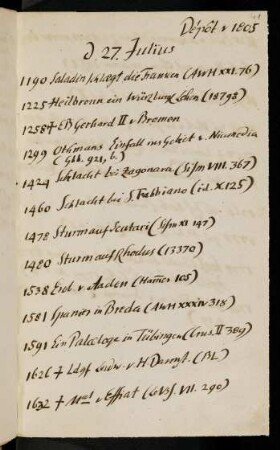 Dépôt v 1805
d. 27. Julius
1190 Saladin schlægt die Franken (AWH XXI. 76)
1225 Heilbronn ein Würzburg Lehen (18798)
1258 + EB Gerhard II v Bremen
1299 Othmans Einfall ins Gebiet v. Nicomedia
(Gbb. 921, b.)
1424 Schlacht bei Zagonara (Sism VIII. 367)
1460 Schlacht bei S. Fabbiano (id. X 125)
1478 Sturm auf Scutari (Sism XI 147)
1480 Sturm auf Rhodus (13370)
1538 Erob. v. Aaden (Ham̅er 105)
1581 Spanier in Breda (AWH XXXIV 318)
1591 Ein Paleologe in Tübingen (Crus. II 389)
1626 + Ldgf Ludw. v. H Darmst. (BL)
1632 + Mal v Effiat (GVSf. VII. 290)